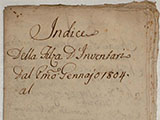 Indice
Della Aba d'Inventari
dal Pmo Gennajo 1804.
al